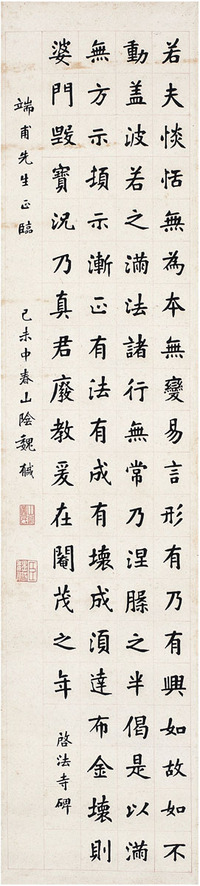 若夫惔恬無為本無變易言形有乃有興如故如不
動盖波若之滿法諸行無常乃涅槃之半偈是以滿
無方示頓示漸正有法有成有壞成湏達布金壞則
婆門毀寶況乃真君廢教爰在閹茂之年 啓法寺碑
端甫先生正臨 己未中春山陰魏戫